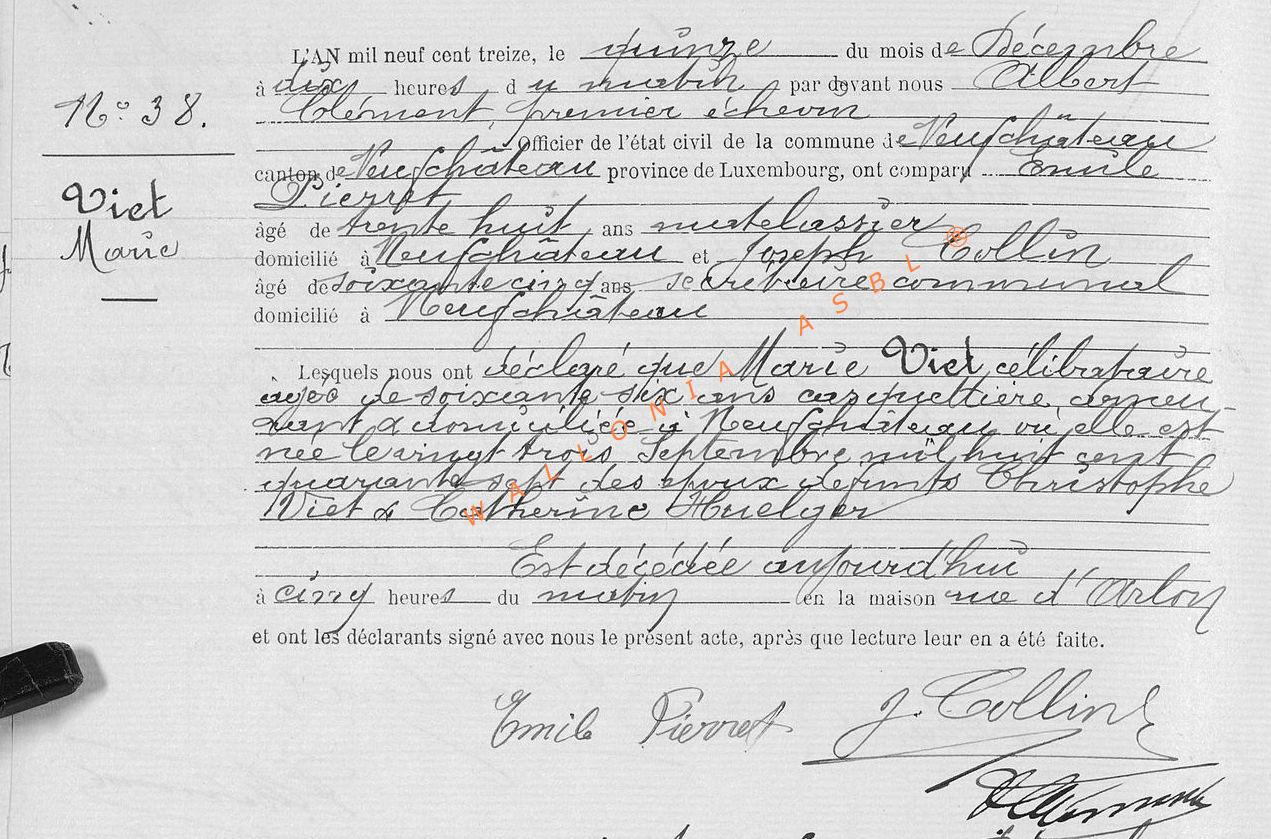 L'AN mil neuf cent treize, le quinze du mois de Décembre
à dix heures du matin par devant nous Albert
Nº 38.
Clément, premier échevin
Officier de l'état civil de la commune de Neufchâteau
canton de Neufchâteau province de Luxembourg, ont comparu Emile
Viet
Marie
Pierret
âgé de trente huit ans matelassier
domicilié à Neufchâteau et Joseph Collin
âgé de soixante cinq ans, secrétaire communal
domicilié à Neufchâteau
Lesquels nous ont déclaré que Marie Viet, célibataire
agée de soixante six ans casquettière, demeu-
rant & domiciliée à Neufchâteau où elle est
née le vingt trois Septembre mil huit cent
quarante sept des époux défunts Christophe
Viet & Catherine Huelger
Est décédée aujourd'hui
à cinq heures du matin en la maison rue d'Arlon
et ont les déclarants signé avec nous le présent acte, après que lecture leur en a été faite.
Emile Pierret J. Collin
WALLONIA ASBL ®